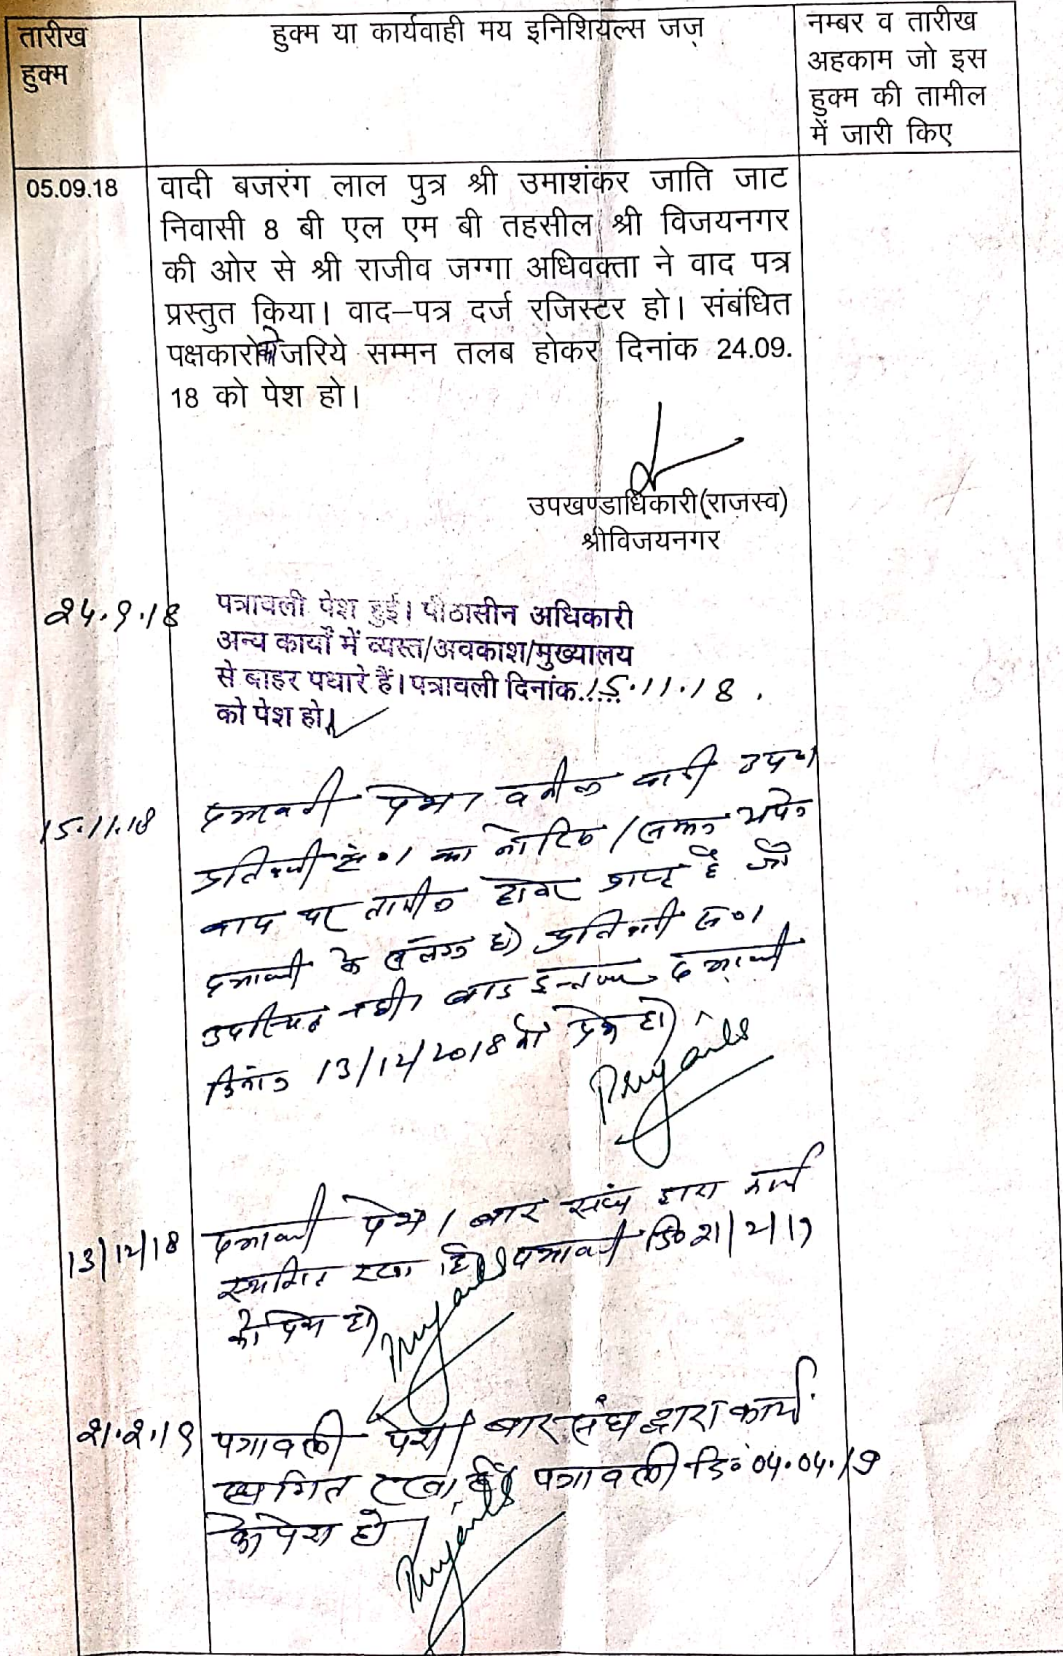 तारीख
हुक्म
हुक्म या कार्यवाही मय इनिशियल्स जज़
नम्बर व तारीख
अहकाम जो इस
हुक्म की तामील
में जारी किए
05.09.18
वादी बजरंग लाल पुत्र श्री उमाशंकर जाति जाट
निवासी 8 बी एल एम बी तहसील श्री विजयनगर
की ओर से श्री राजीव जग्गा अधिवक्ता ने वाद पत्र
प्रस्तुत किया। वाद–पत्र दर्ज रजिस्टर हो। संबंधित
पक्षकारो को जरिये सम्मन तलब होकर दिनांक 24.09.
18 को पेश हो।
उपखण्डाधिकारी(राजस्व)
श्रीविजयनगर
24.9.18
पत्रावली पेश हुई। पीठासीन अधिकारी
अन्य कार्यों में व्यस्त/अवकाश/मुख्यालय
से बाहर पधारे हैं। पत्रावली दिनांक 15.11.18.
को पेश हो।
15.11.18
पत्रावली पेश। वकील वादी उप०।
प्रतिवादी सं० 1 का नोटिस / सम्मन
पर तामील होकर प्राप्त है जो
पत्रावली के संलग्न हो। प्रतिवादी सं० 1
उपस्थित नहीं। बाद इन्तजार पत्रावली
दिनांक 13/12/2018 को पेश हो।
13/12/18
पत्रावली पेश। बार संघ द्वारा कार्य
स्थगित रखा है। पत्रावली दि० 21/2/19
को पेश हो।
21.2.19
पत्रावली पेश। बार संघ द्वारा कार्य
स्थगित रखा है। पत्रावली दि० 04.04.19
को पेश हो।